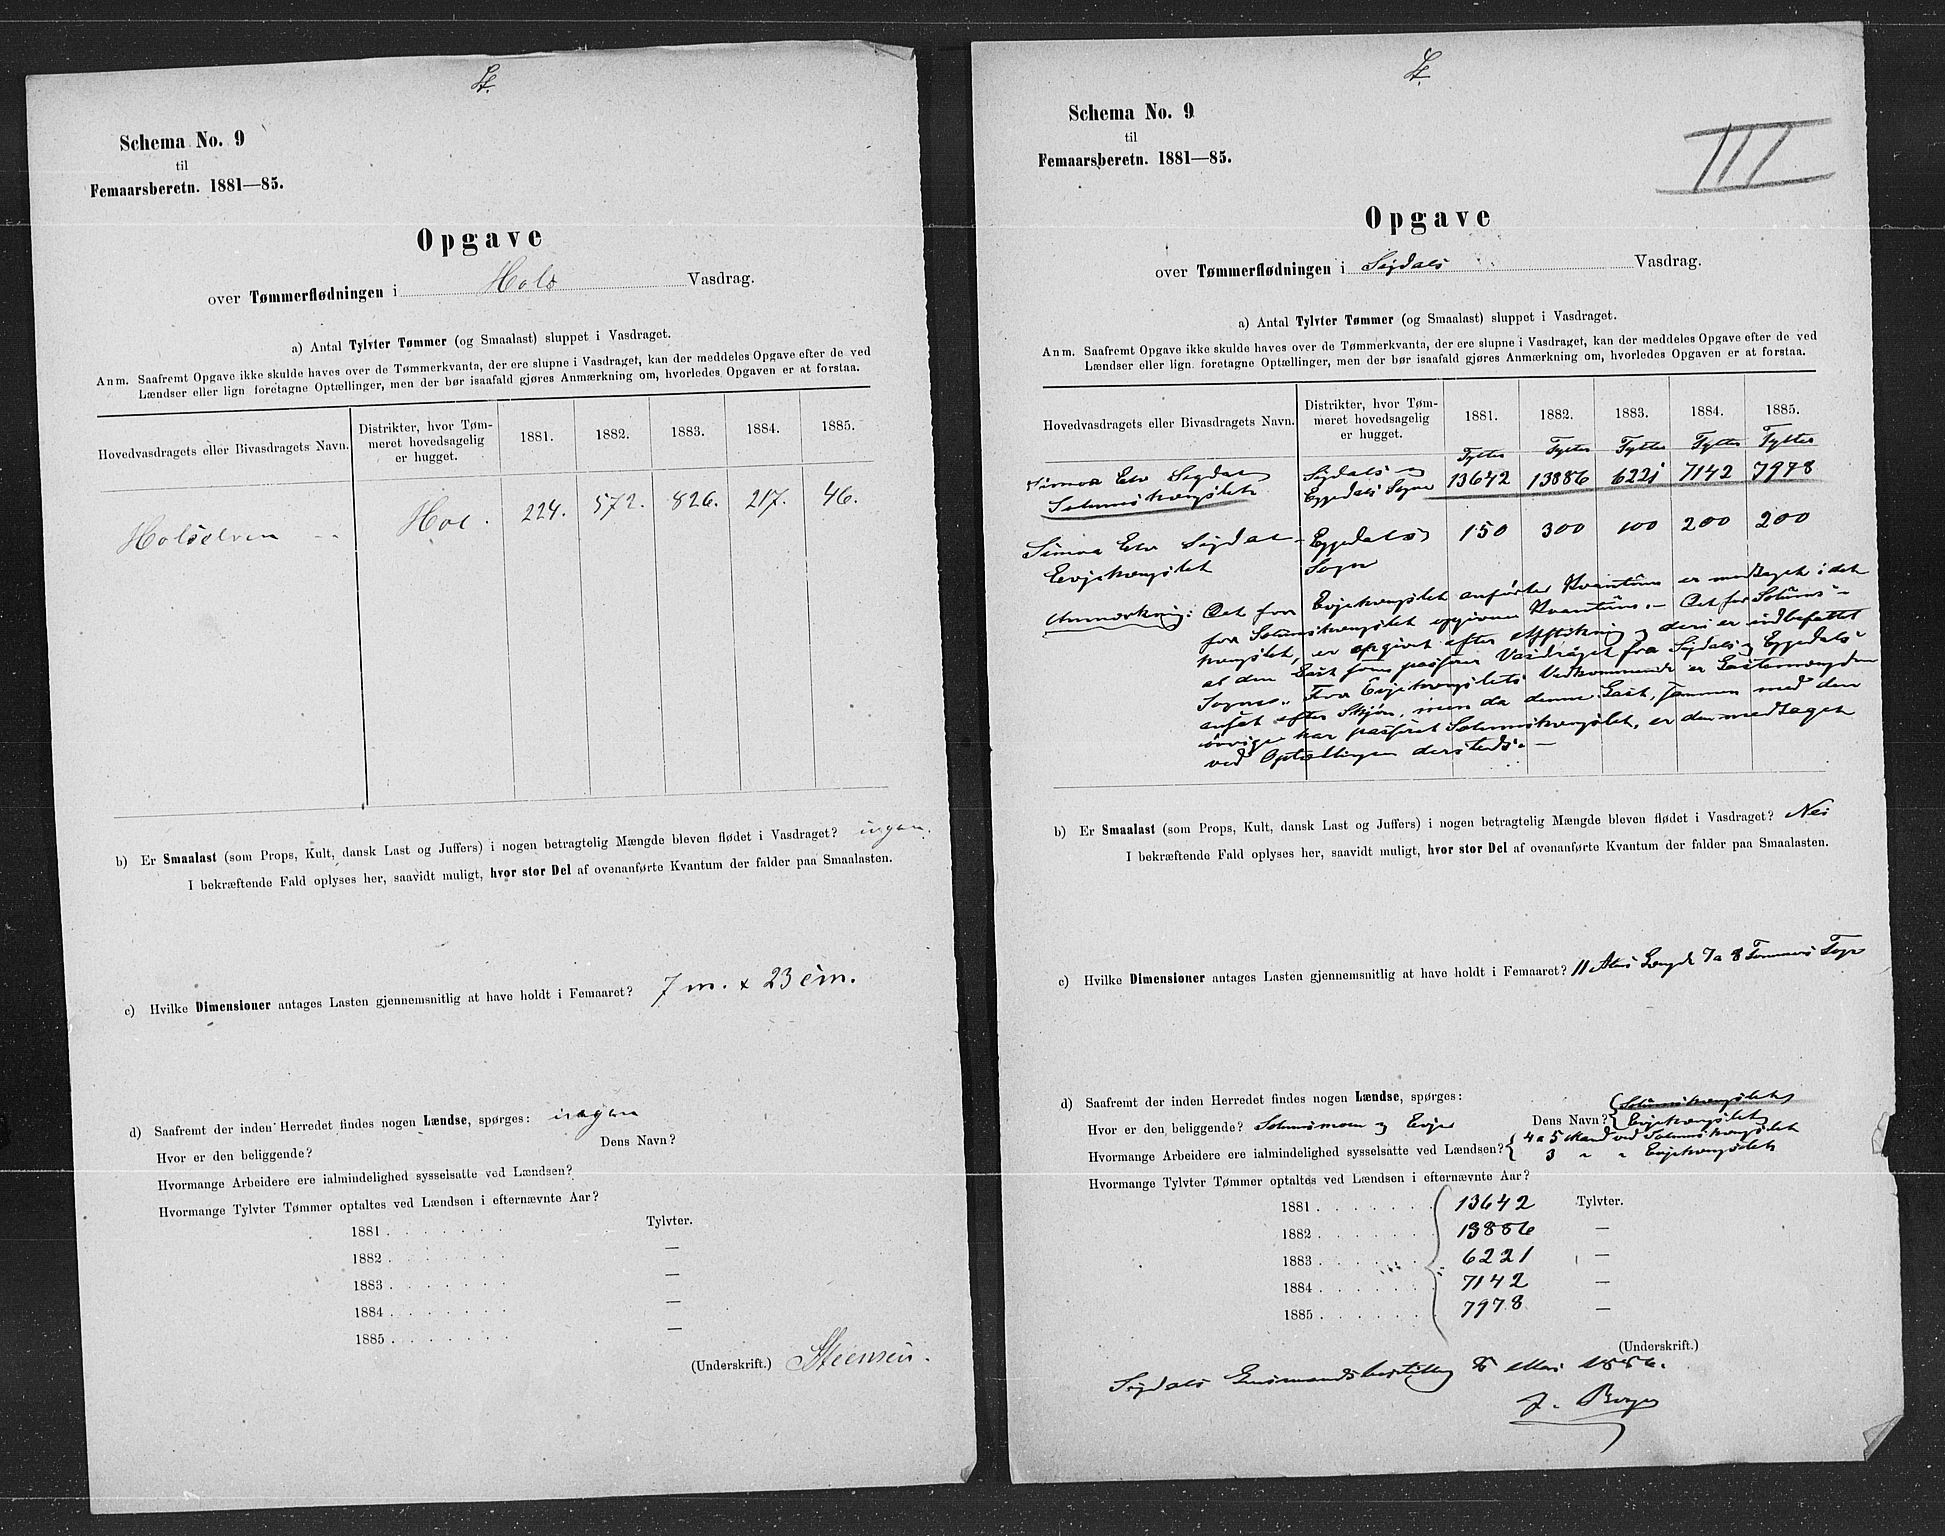 Schema No. 9
til
Femaarsberetn. 1881—85.
Opgave
over Tømmerflødningen i Hols Vasdrag.
a) Antal Tylvter Tømmer (og Smaalast) sluppet i Vasdraget.
Anm. Saafremt Opgave ikke skulde haves over de Tømmerkvanta, der ere slupne i Vasdraget, kan der meddeles Opgave efter de ved
Lændser eller lign. foretagne Optællinger, men der bør isaafald gjøres Anmærkning om, hvorledes Opgaven er at forstaa.
Hovedvasdragets eller Bivasdragets Navn. Distrikter, hvor Tøm- 1881. 1882. 1883. 1884. 1885.
meret hovedsagelig
er hugget.
Holselven Hol. 224. 572. 826. 217. 46.
b) Er Smaalast (som Props, Kult, dansk Last og Juffers) i nogen betragtelig Mængde bleven flødet i Vasdraget? ingen.
I bekræftende Fald oplyses her, saavidt muligt, hvor stor Del af ovenanførte Kvantum der falder paa Smaalasten.
c) Hvilke Dimensioner antages Lasten gjennemsnitlig at have holdt i Femaaret? 7 m. x 23 cm.
d) Saafremt der inden Herredet findes nogen Lændse, spørges: ingen
Hvor er den beliggende? Dens Navn?
Hvormange Arbeidere ere ialmindelighed sysselsatte ved Lændsen?
Hvormange Tylvter Tømmer optaltes ved Lændsen i efternævnte Aar?
1881 . . . . . . Tylvter.
1882 . . . . . . —
1883 . . . . . . —
1884 . . . . . . —
1885 . . . . . . —
(Underskrift.) Steensen.
Schema No. 9
til
Femaarsberetn. 1881—85.
III
Opgave
over Tømmerflødningen i Sigdals Vasdrag.
a) Antal Tylvter Tømmer (og Smaalast) sluppet i Vasdraget.
Anm. Saafremt Opgave ikke skulde haves over de Tømmerkvanta, der ere slupne i Vasdraget, kan der meddeles Opgave efter de ved
Lændser eller lign. foretagne Optællinger, men der bør isaafald gjøres Anmærkning om, hvorledes Opgaven er at forstaa.
Hovedvasdragets eller Bivasdragets Navn. Distrikter, hvor Tøm- 1881. 1882. 1883. 1884. 1885.
meret hovedsagelig
er hugget.
Tylter Tylter Tylter Tylter Tylter
Simoa Elv Sigdal Sigdals og 13642 13886 6221 7142 7978
Solumshengslet Eggedals Sogne
Simoa Elv Sigdal Eggedals 150 300 100 200 200
Evjehengslet Sogn
Anmærkning: Det for Evjehengslet anførte Kvantum er medtaget i det
for Solumshengslet opgivne Kvantum. — Det for Solums-
hengslet, er opgivet efter og deri er indbefattet
al den Last som passerer Vasdraget fra Sigdals og Eggedals
Sogne. For Evjehengslets Vedkommende er Lastemængden
ansat efter Skjøn, men da denne Last, sammen med den
øvrige har passeret Solumshengslet, er den medtaget
ved Optællingen dersteds. —
b) Er Smaalast (som Props, Kult, dansk Last og Juffers) i nogen betragtelig Mængde bleven flødet i Vasdraget? Nei
I bekræftende Fald oplyses her, saavidt muligt, hvor stor Del af ovenanførte Kvantum der falder paa Smaalasten.
c) Hvilke Dimensioner antages Lasten gjennemsnitlig at have holdt i Femaaret? 11 Alens Længde 7 a 8 Tommers Top
d) Saafremt der inden Herredet findes nogen Lændse, spørges:
Hvor er den beliggende? Solumsmoen og Evje Dens Navn? { Solumshengslet
Evjehengslet
Hvormange Arbeidere ere ialmindelighed sysselsatte ved Lændsen? { 4 a 5 Mand ved Solumshengslet
3 " " Evjehengslet
Hvormange Tylvter Tømmer optaltes ved Lændsen i efternævnte Aar?
1881 . . . . . . 13642 Tylvter.
1882 . . . . . . 13886 —
1883 . . . . . . 6221 —
1884 . . . . . . 7142 —
1885 . . . . . . 7978 —
(Underskrift.)
Sigdals Lensmandsbestilling 8 Mai 1886.